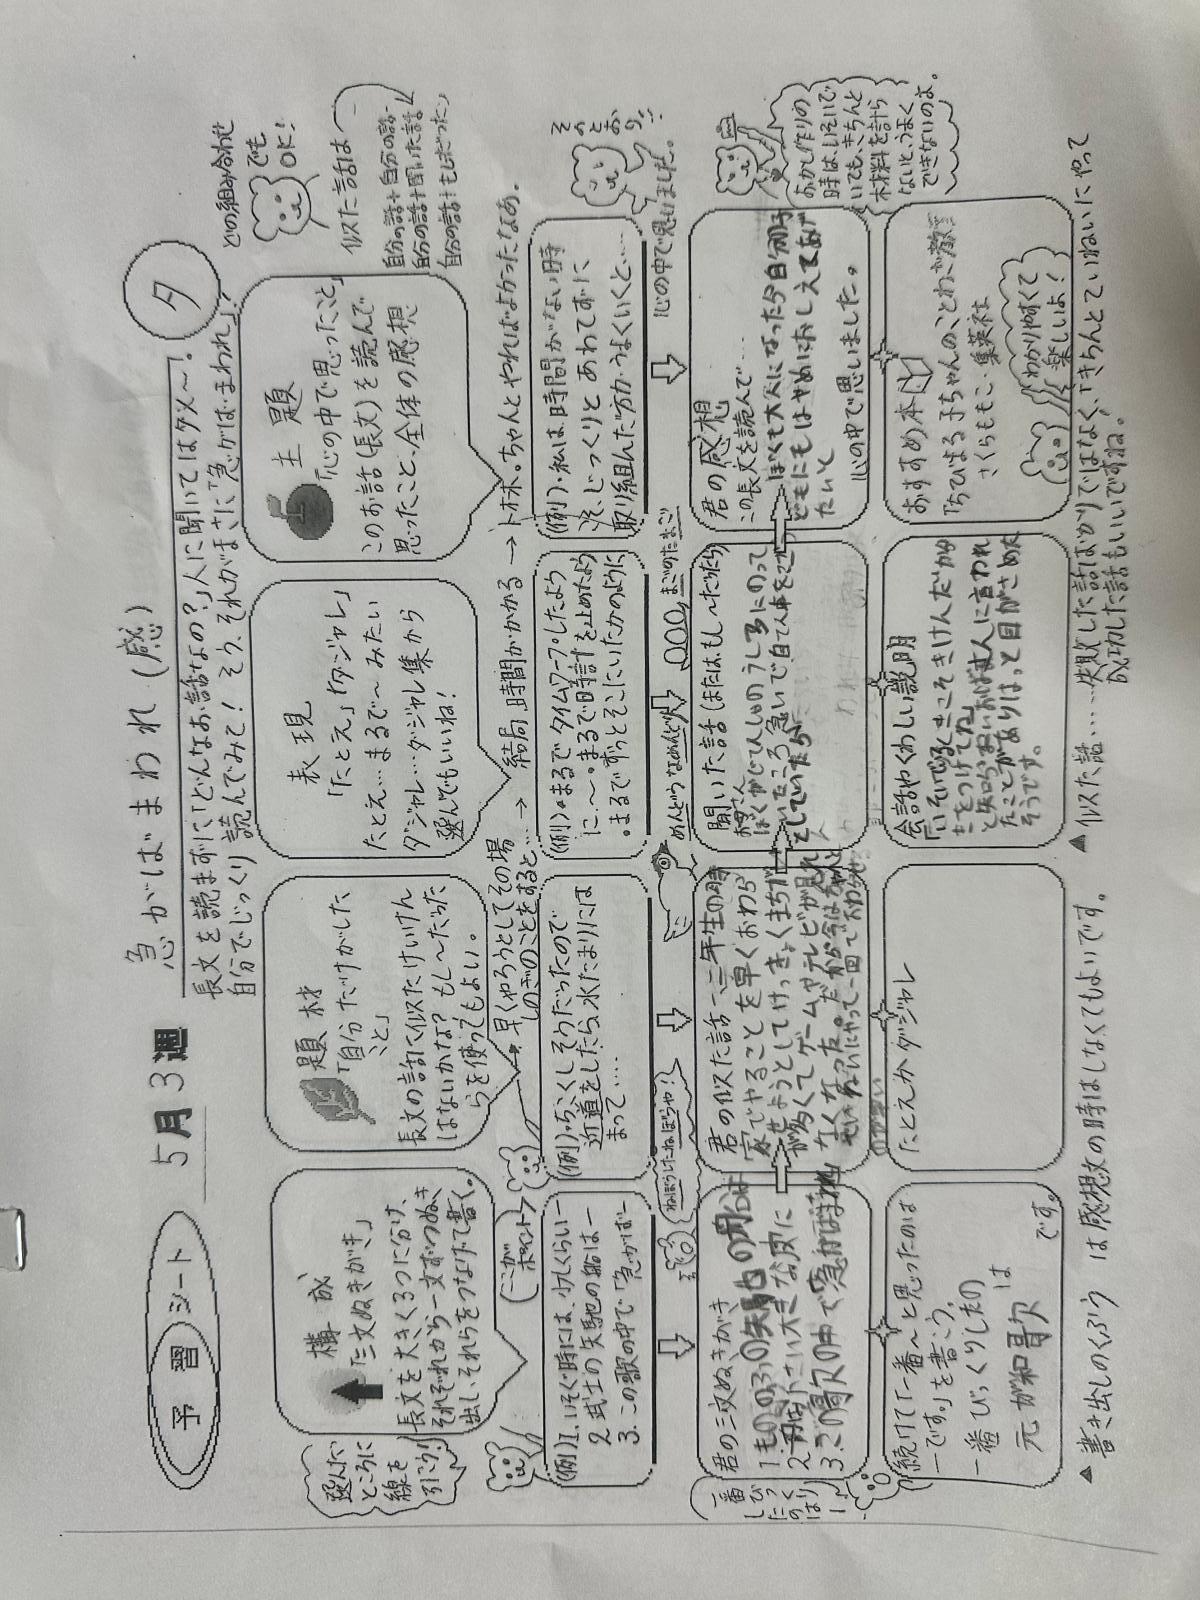 予習シート
5月3週
急がばまわれ(感)
夕
長文を読まずに「どんなお話なの?」人に聞いてはダメ〜!
自分でじっくり読んでみて! そう、それがまさに「急がば・まわれ」!
どの組み合わせ
でも
OK!
選んだ
ところに
線を
引こう!
構成
「三文ぬきがき」
長文を大きく3つに分け、
それぞれから一文ずつぬき
出し、それらをつなげて書く。
題材
「自分だけがした
こと」
長文の話に似たけいけん
はないかな? もし〜だった
らを使ってもよい。
表現
「たとえ」「ダジャレ」
たとえ…まるで〜みたい
ダジャレ…ダジャレ集から
選んでもいいね!
主題
「心の中で思ったこと」
このお話(長文)を読んで
思ったこと、全体の感想
似た話は
自分の話+自分の話
自分の話+聞いた話
自分の話+もしだった
ここが
ポイント
早くやろうとしてその場
しのぎのことをすると…
→ 結局、時間がかかる →
トホホ。ちゃんとやればよかったなあ。
(例)1.いそぐ時には、
2.武士の矢馳の船は―
3.この歌の中で「急がば―
(例)・ちこくしそうだったので
近道をしたら、水たまりには
まって……
(例)・まるでタイムワープしたよう
に、〜・まるで時計を止めたよう
・まるでずっとそこにいたかのように
(例)・私は、時間がない時
程、じっくりとあわてずに
取り組んだ方がうまくいくと……
心の中で思いました。
そのとおり!!
ねぼうしたねぼうや!
めんどうなめんどり
まごのたまご
君の三文ぬきがき
1.もののふの矢馳の舟は
3.この歌の中で「急がばまわれ
君の似た話 一、二年生の時
家でやることを早くおわら
せようとしてけっきょくまちがい
が多くてゲームやテレビが見れ
なくなった。だから今はちゃんと
ていねいにやって一回で
聞いた話(または、もし〜だったら)
お母さん
ぼくがじてんしゃのうしろにのって
いたころ 急いで自てん車をこごう
としていたら
君の感想
この長文を読んで…
ぼくも大人になったら自分の子
どもにもはやめにおしえてあげ
たいと
心の中で思いました。
おかし作りの
時は、いそいで
いても、きちんと
材料を計ら
ないと、うまく
できないのよ。
一番
びっくり
したのは
続けて「一番〜と思ったのは
―です。」を書こう。
一番びっくりしたの
は
元が和歌
です。
たとえかダジャレ
会話やくわしい説明
「いそいでるときこそきけんだから
気をつけてね」
と知らないおばあさんに言われ
たことがありはっと目がさめた
そうです。
おすすめ本
「ちびまる子ちゃんのことわざ教室」
さくらももこ・集英社
わかりやすくて
楽しいよ!
▲書き出しのくふう は感想文の時はしなくてもよいです。
▲似た話……失敗した話ばかりではなく、「きちんとていねいにやって
成功した話もいいですね。